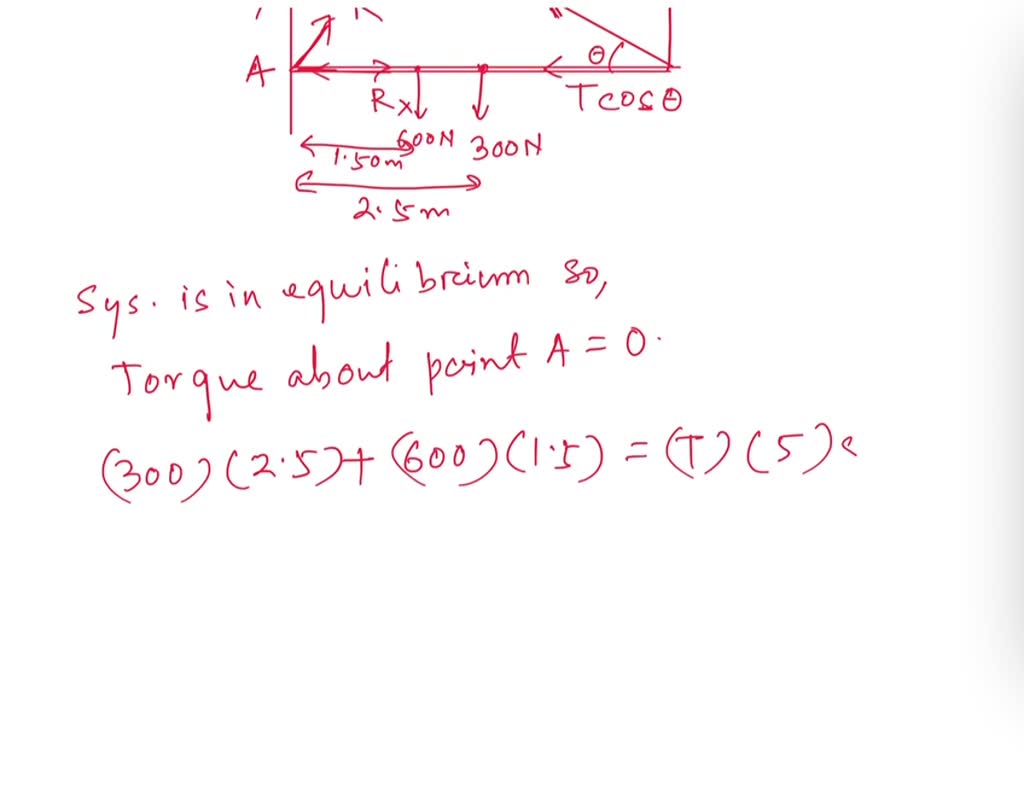 A
θ
Rx
T cos θ
600N
300N
1.50m
2.5m
Sys. is in equilibrium so,
Torque about point A = 0.
(300) (2.5) + (600) (1.5) = (T) (5)